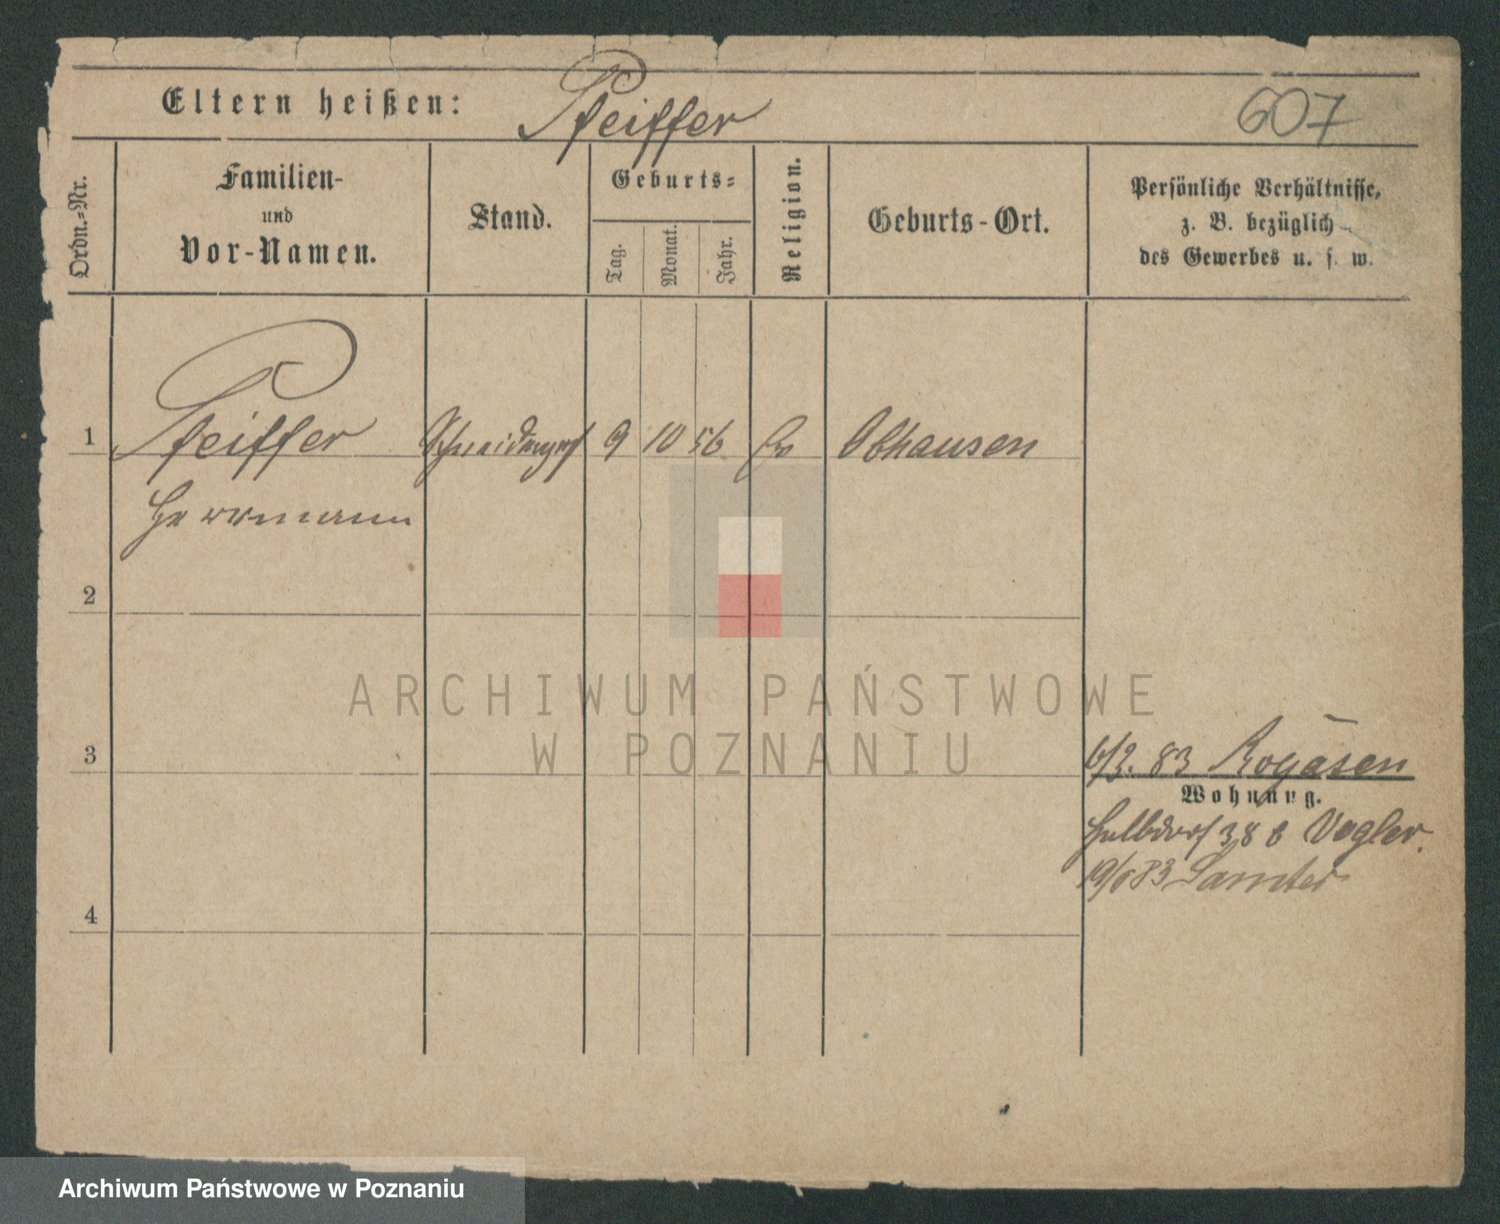 Eltern heißen: Pfeiffer
607
Ordn.=Nr.
Familien-
und
Vor-Namen.
Stand.
Geburts=
Tag.
Monat.
Jahr.
Religion.
Geburts-Ort.
Persönliche Verhältnisse,
z. B. bezüglich
des Gewerbes u. s. w.
1 Pfeiffer Schneiderges 9 10 56 Ev Obhausen
Herrmann
2
ARCHIWUM PAŃSTWOWE
W POZNANIU
3
83 Rogasen
Wohnung.
Halbdorf 38 b Vogler.
19/6 83 Samter
4
Archiwum Państwowe w Poznaniu